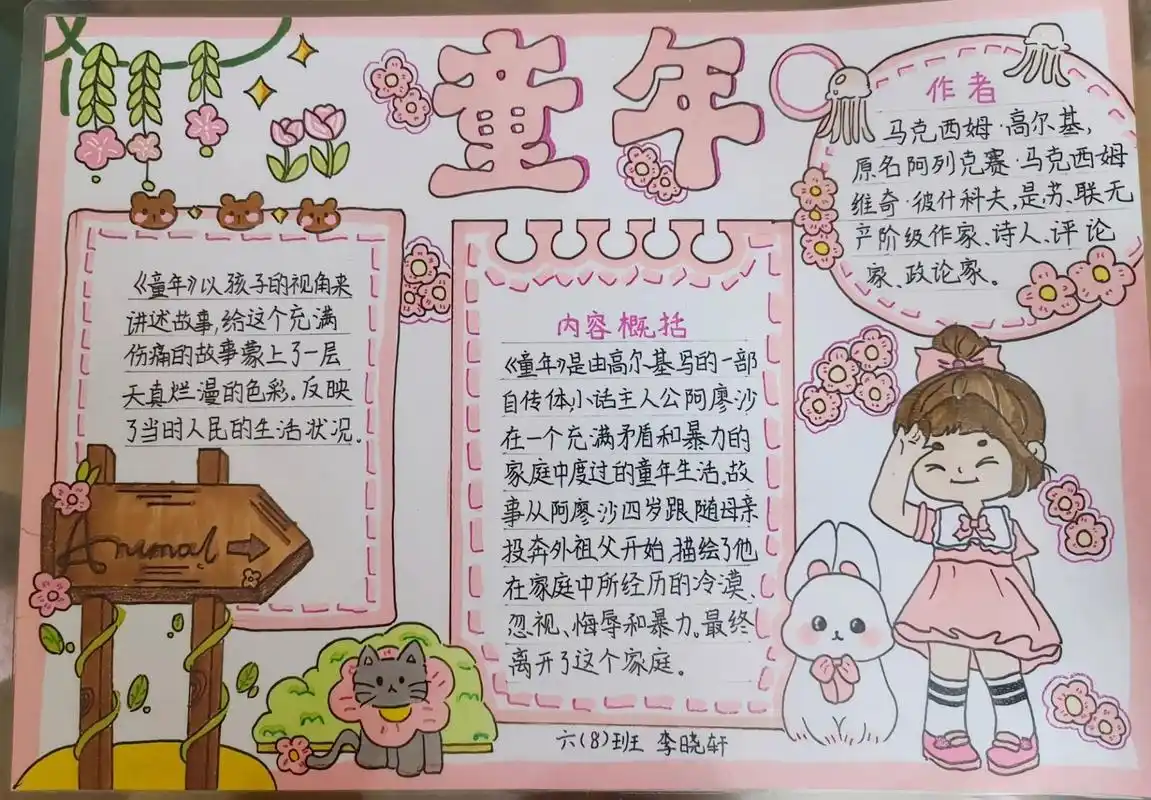 童年
《童年》以孩子的视角来
讲述故事,给这个充满
伤痛的故事蒙上了一层
天真烂漫的色彩。反映
了当时人民的生活状况。
Animal
内容概括
《童年》是由高尔基写的一部
自传体,小话主人公阿廖沙
在一个充满矛盾和暴力的
家庭中度过的童年生活。故
事从阿廖沙四岁跟随母亲
投奔外祖父开始,描绘了他
在家庭中所经历的冷漠、
忽视、悔辱和暴力。最终
离开了这个家庭。
作者
马克西姆·高尔基,
原名阿列克赛·马克西姆
维奇·彼什科夫,是苏、联无
产阶级作家、诗人、评论
家、政论家。
六(8)班 李晓轩